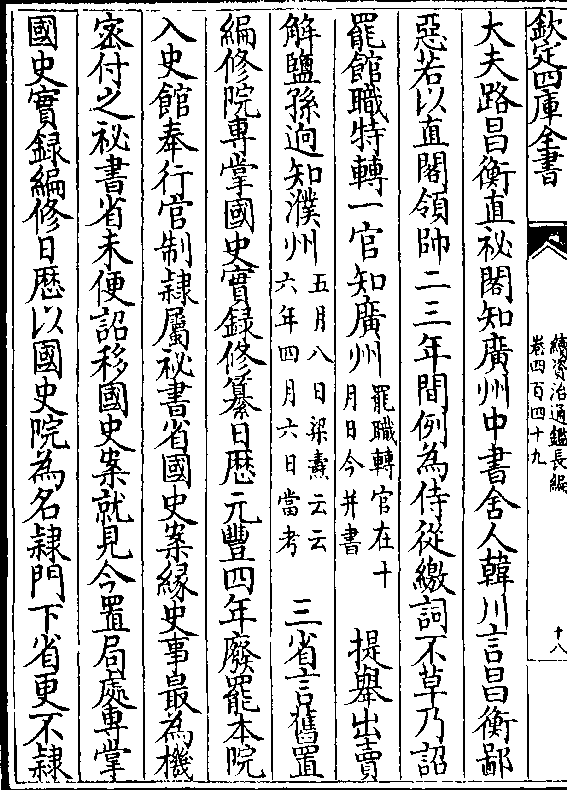 欽定四庫全書
續資治通鑑長編
卷四百四十九
十八
大夫路昌衡直祕閣知廣州中書舍人韓川言昌衡鄙
惡若以直閣領帥二三年間例為侍從繳詞不草乃詔
罷館職特轉一官知廣州罷職轉官在十
月日今并書提舉出賣
解鹽孫迥知濮州五月八日梁燾云云
六年四月六日當考三省言舊置
編修院專掌國史實録修纂日厯元豐四年廢罷本院
入史館奉行官制隷屬祕書省國史案緣史事最為機
宻付之祕書省未便詔移國史案就見今置局處專掌
國史實録編修日厯以國史院為名隷門下省更不隷